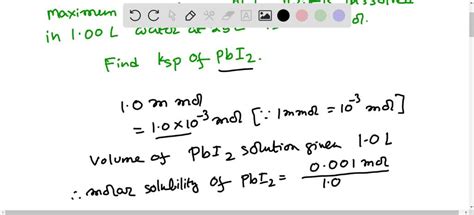 maximum
in 1.00 L water at
Find Ksp of PbI2.
1.0 m mol
= 1.0 × 10⁻³ mol [∵ 1 mmol = 10⁻³ mol]
Volume of PbI2 solution given 1.0 L
∴ molar solubility of PbI2 = 0.001 mol
1.0